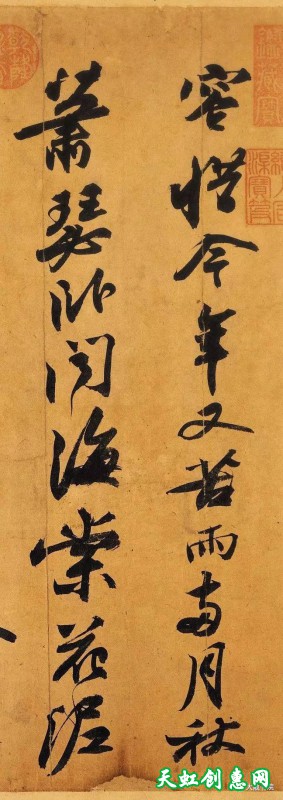 容惜今年又苦雨兩月秋
蕭瑟卧聞海棠花泥
天虹创惠网